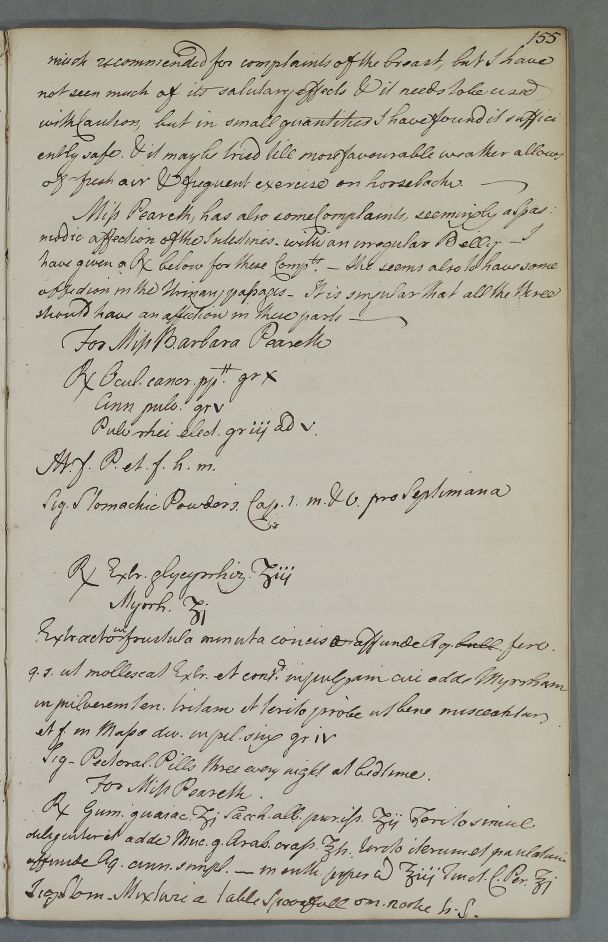 155
much recommended for complaints of the breast, but I have
not seen much of its salutary effects & it needs to be used
with Caution, but in small quantities I have found it suffici
ently safe. & it may be tried till more favourable weather allows
of fresh air & frequent exercise on horseback.
Miss Peareth, has also some Complaints, seemingly a spas:
modic affection of the Intestines. with an irregular Belly — I
have given a Rx below for these Comp.ts — she seems also to have some
affection in the Urinary passages — It is singular that all the three
should have an affection in these parts —
For Miss Barbara Peareth
Rx Ocul. cancr. pp.tt gr x
Cinn pulv. gr v
Pulv rhei elect. gr iij ad v.
M. f. P. et. f. h. m.
Sig. Stomachic Powders. Cap. 1. m. & v. pro Septimana
Rx Extr. glycyrrhiz. ʒiij
Myrrh. ʒj
Extracto in frustula minuta conciso affunde Aq. bull. ferv.
q. s. ut mollescat Extr. et cont.d in pulpam cui adde Myrrham
in pulverem ten. tritam et terito probe ut bene misceantur
et f. m Massa div. in pil. sing gr iv
Sig — Pectoral Pills three every night at bedtime.
For Miss Peareth.
Rx Gum. guaiac. ʒj Sacch. alb. puriss. ʒij Terito simul
diligenter et adde Muc. g. Arab. crass. ʒss. terito iterum et paulatim
affunde Aq. cinn. simpl. — menth. piper a ʒiij Tinct. C. Per. ʒj
Sig. Stom. Mixture a table Spoonfull om. nocte h. S.